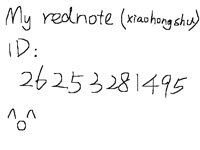 My rednote (xiaohongshu)
ID:
26253281495
^o^